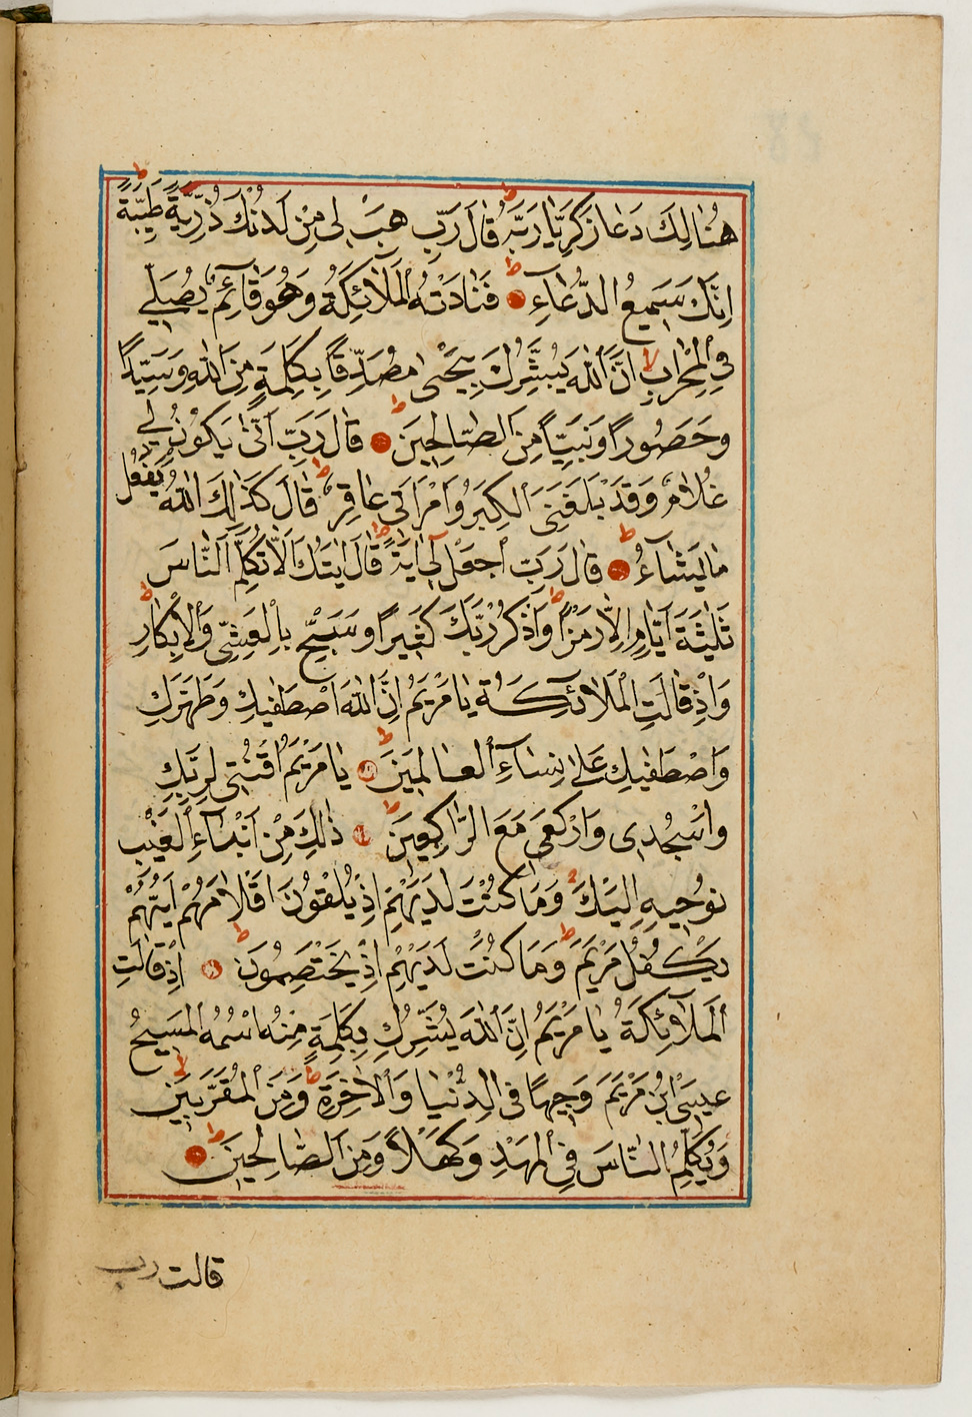 هُنَالِكَ دَعَا زَكَرِيَّا رَبَّهُ قَالَ رَبِّ هَبْ لِي مِنْ لَدُنْكَ ذُرِّيَّةً طَيِّبَةً
اِنَّكَ سَمِيعُ الدُّعَاءِ فَنَادَتْهُ الْمَلَائِكَةُ وَهُوَ قَائِمٌ يُصَلِّي
فِي الْمِحْرَابِ اَنَّ اللّٰهَ يُبَشِّرُكَ بِيَحْيٰى مُصَدِّقًا بِكَلِمَةٍ مِنَ اللّٰهِ وَسَيِّدًا
وَحَصُورًا وَنَبِيًّا مِنَ الصَّالِحِينَ قَالَ رَبِّ اَنّٰى يَكُونُ لِي
غُلَامٌ وَقَدْ بَلَغَنِيَ الْكِبَرُ وَامْرَاَتِي عَاقِرٌ قَالَ كَذٰلِكَ اللّٰهُ يَفْعَلُ
مَا يَشَاءُ قَالَ رَبِّ اجْعَلْ لِي اٰيَةً قَالَ اٰيَتُكَ اَلَّا تُكَلِّمَ النَّاسَ
ثَلٰثَةَ اَيَّامٍ اِلَّا رَمْزًا وَاذْكُرْ رَبَّكَ كَثِيرًا وَسَبِّحْ بِالْعَشِيِّ وَالْاِبْكَارِ
وَاِذْ قَالَتِ الْمَلَائِكَةُ يَا مَرْيَمُ اِنَّ اللّٰهَ اصْطَفٰيكِ وَطَهَّرَكِ
وَاصْطَفٰيكِ عَلٰى نِسَاءِ الْعَالَمِينَ يَا مَرْيَمُ اقْنُتِي لِرَبِّكِ
وَاسْجُدِي وَارْكَعِي مَعَ الرَّاكِعِينَ ذٰلِكَ مِنْ اَنْبَاءِ الْغَيْبِ
نُوحِيهِ اِلَيْكَ وَمَا كُنْتَ لَدَيْهِمْ اِذْ يُلْقُونَ اَقْلَامَهُمْ اَيُّهُمْ
يَكْفُلُ مَرْيَمَ وَمَا كُنْتَ لَدَيْهِمْ اِذْ يَخْتَصِمُونَ اِذْ قَالَتِ
الْمَلَائِكَةُ يَا مَرْيَمُ اِنَّ اللّٰهَ يُبَشِّرُكِ بِكَلِمَةٍ مِنْهُ اسْمُهُ الْمَسِيحُ
عِيسَى ابْنُ مَرْيَمَ وَجِيهًا فِي الدُّنْيَا وَالْاٰخِرَةِ وَمِنَ الْمُقَرَّبِينَ
وَيُكَلِّمُ النَّاسَ فِي الْمَهْدِ وَكَهْلًا وَمِنَ الصَّالِحِينَ
قالت رب